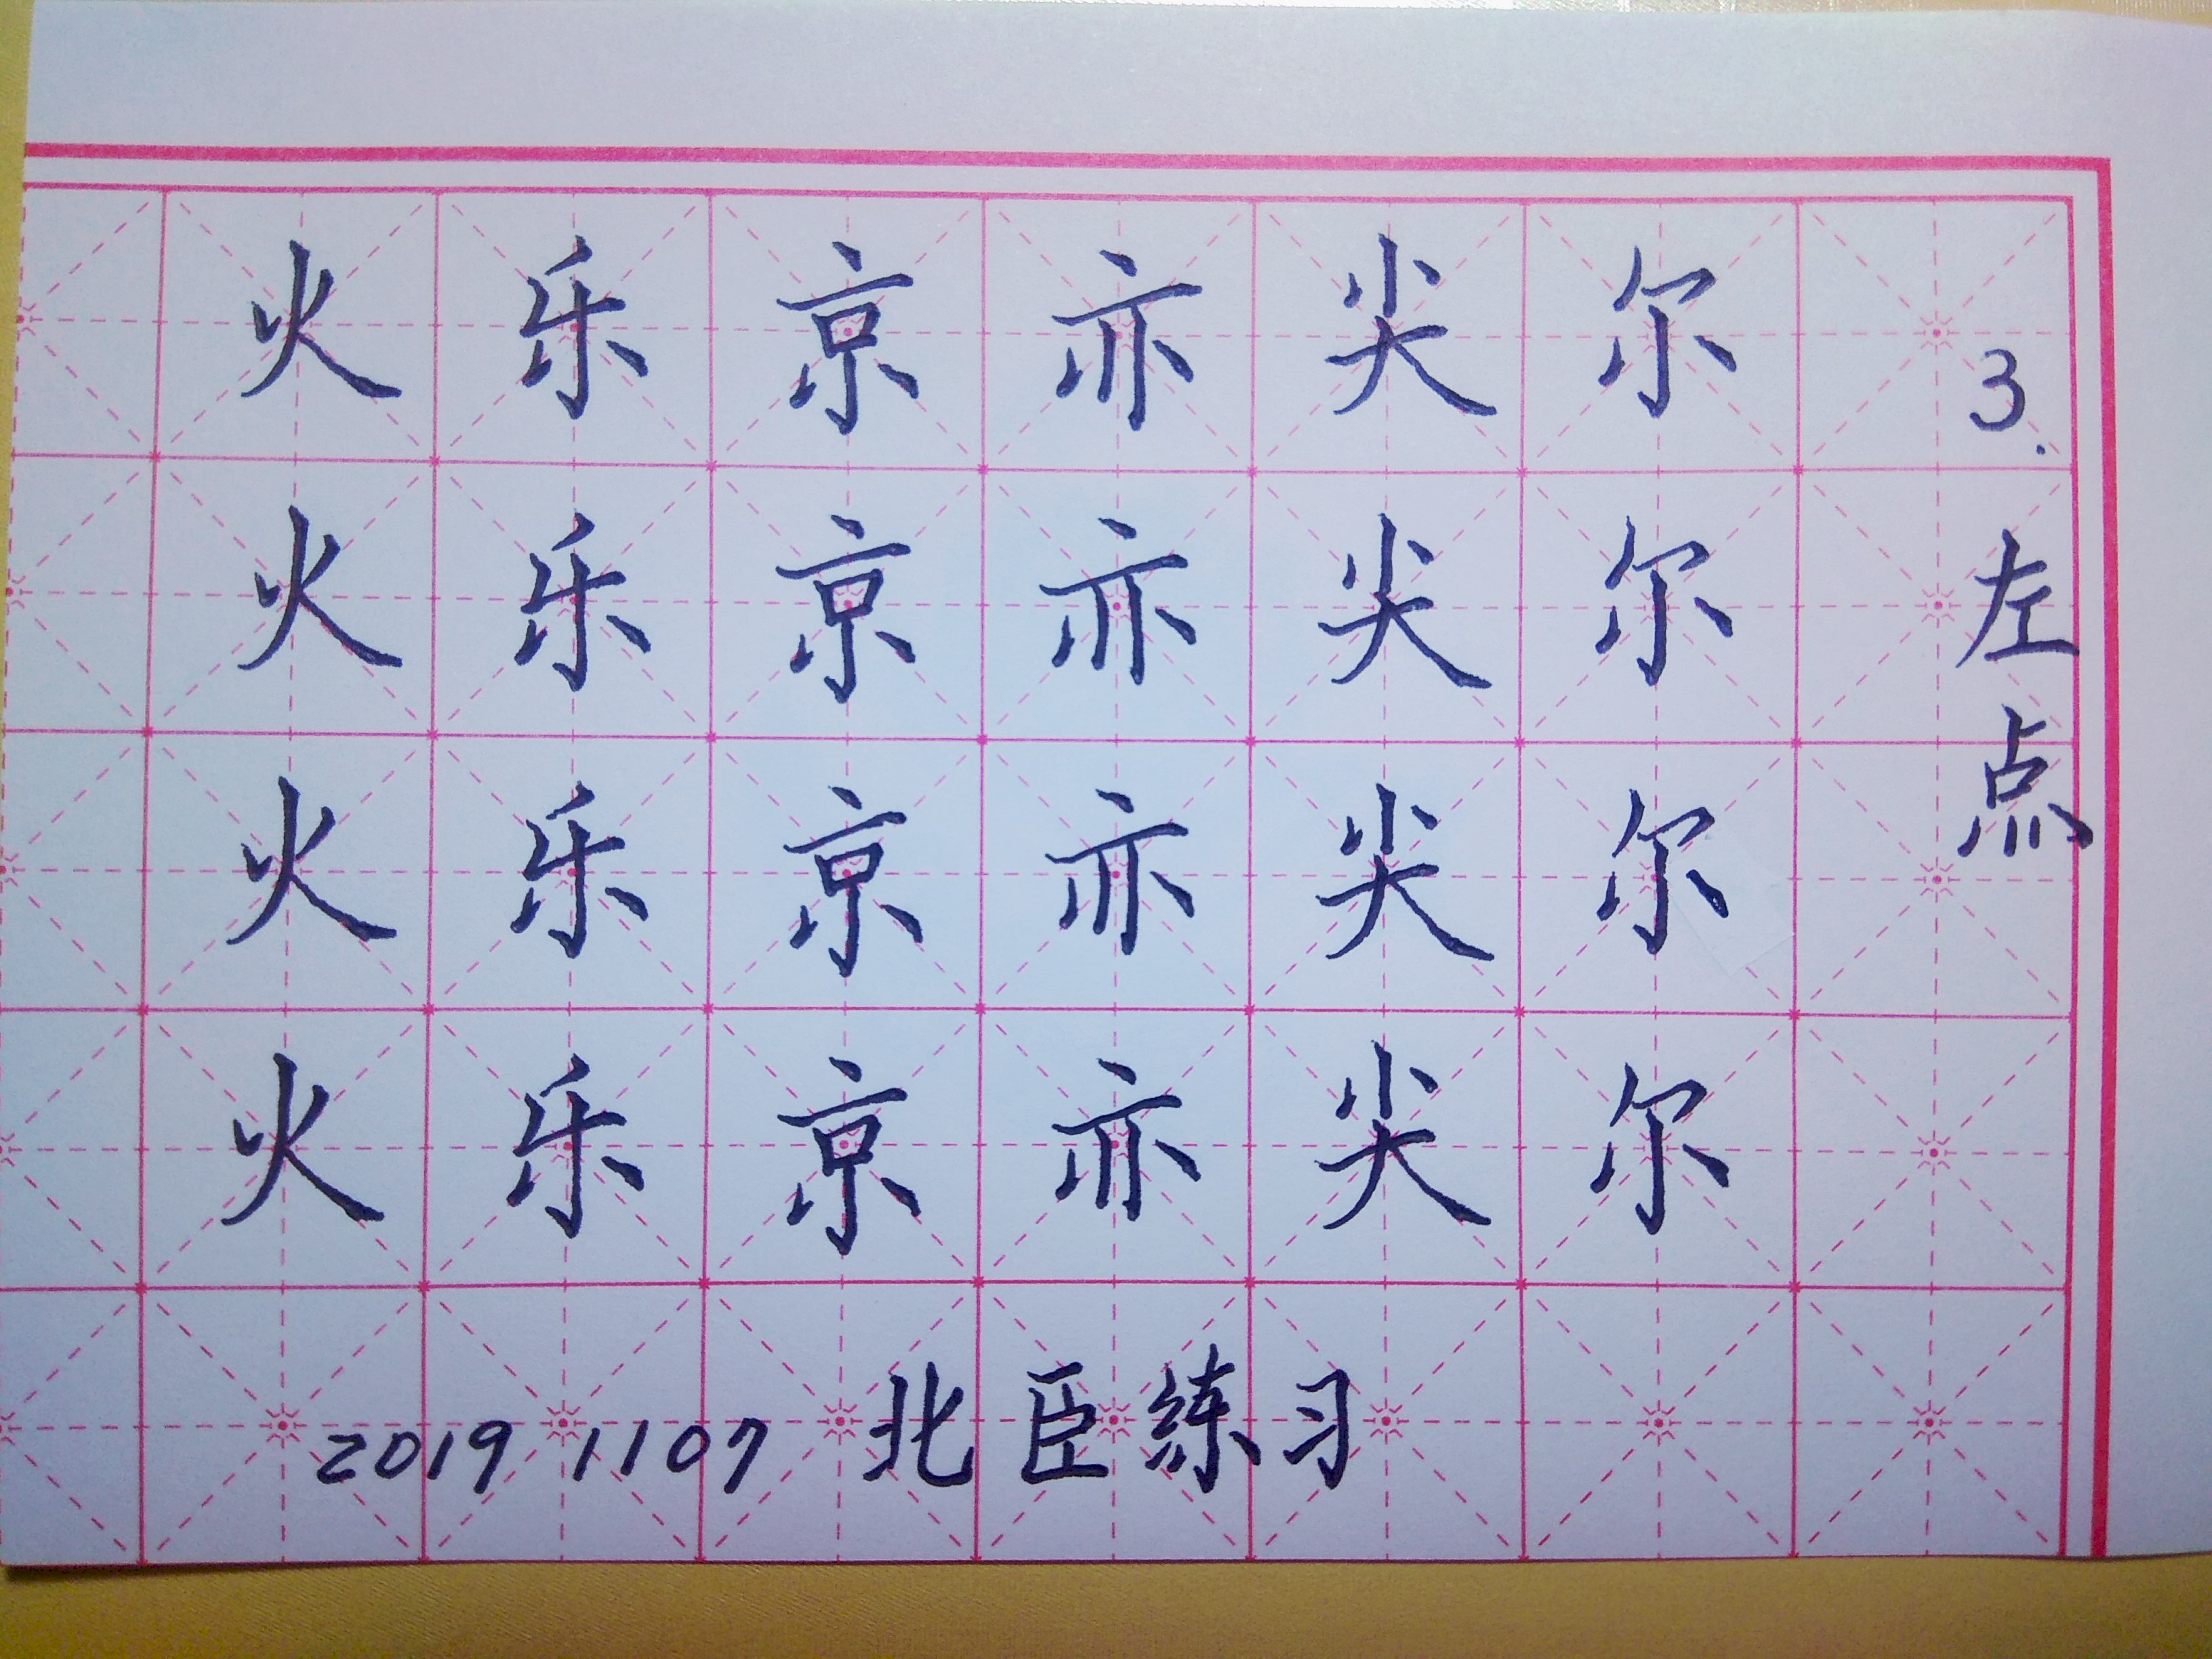 3.左点
尔尔尔尔
尖尖尖尖
亦亦亦亦
京京京京
乐乐乐乐
火火火火
2019 1107 北臣练习